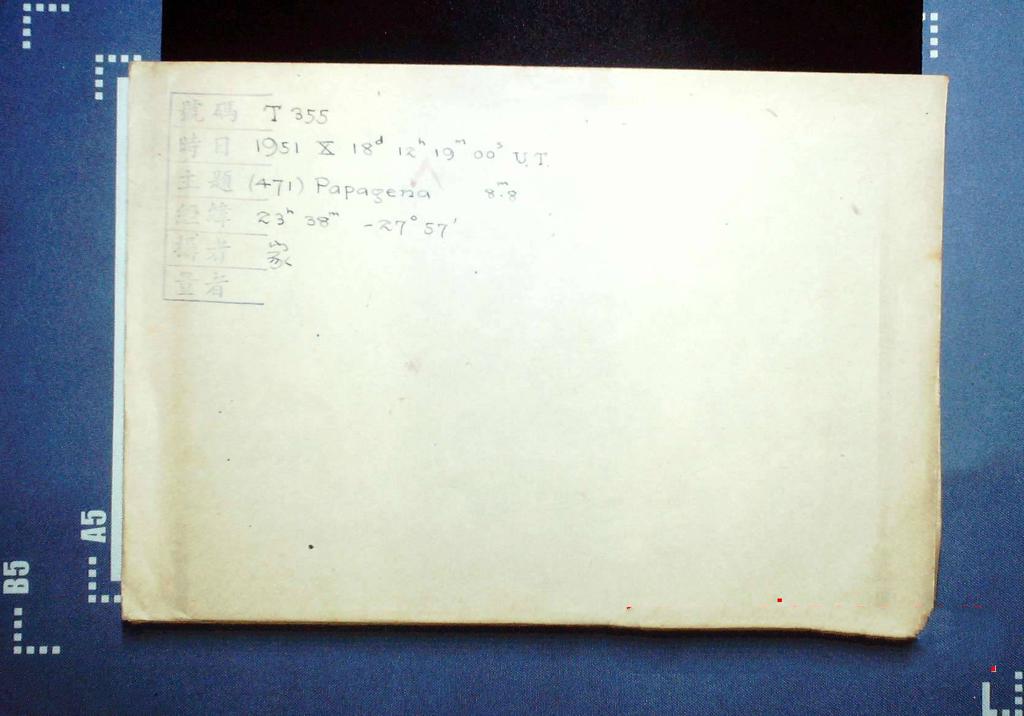 號碼 T 355
時日 1951 X 18ᵈ 12ʰ 19ᵐ 00ˢ U.T.
主題 (471) Papagena 8ᵐ.8
經緯 23ʰ 38ᵐ -27° 57′
攝者
量者
A5
B5